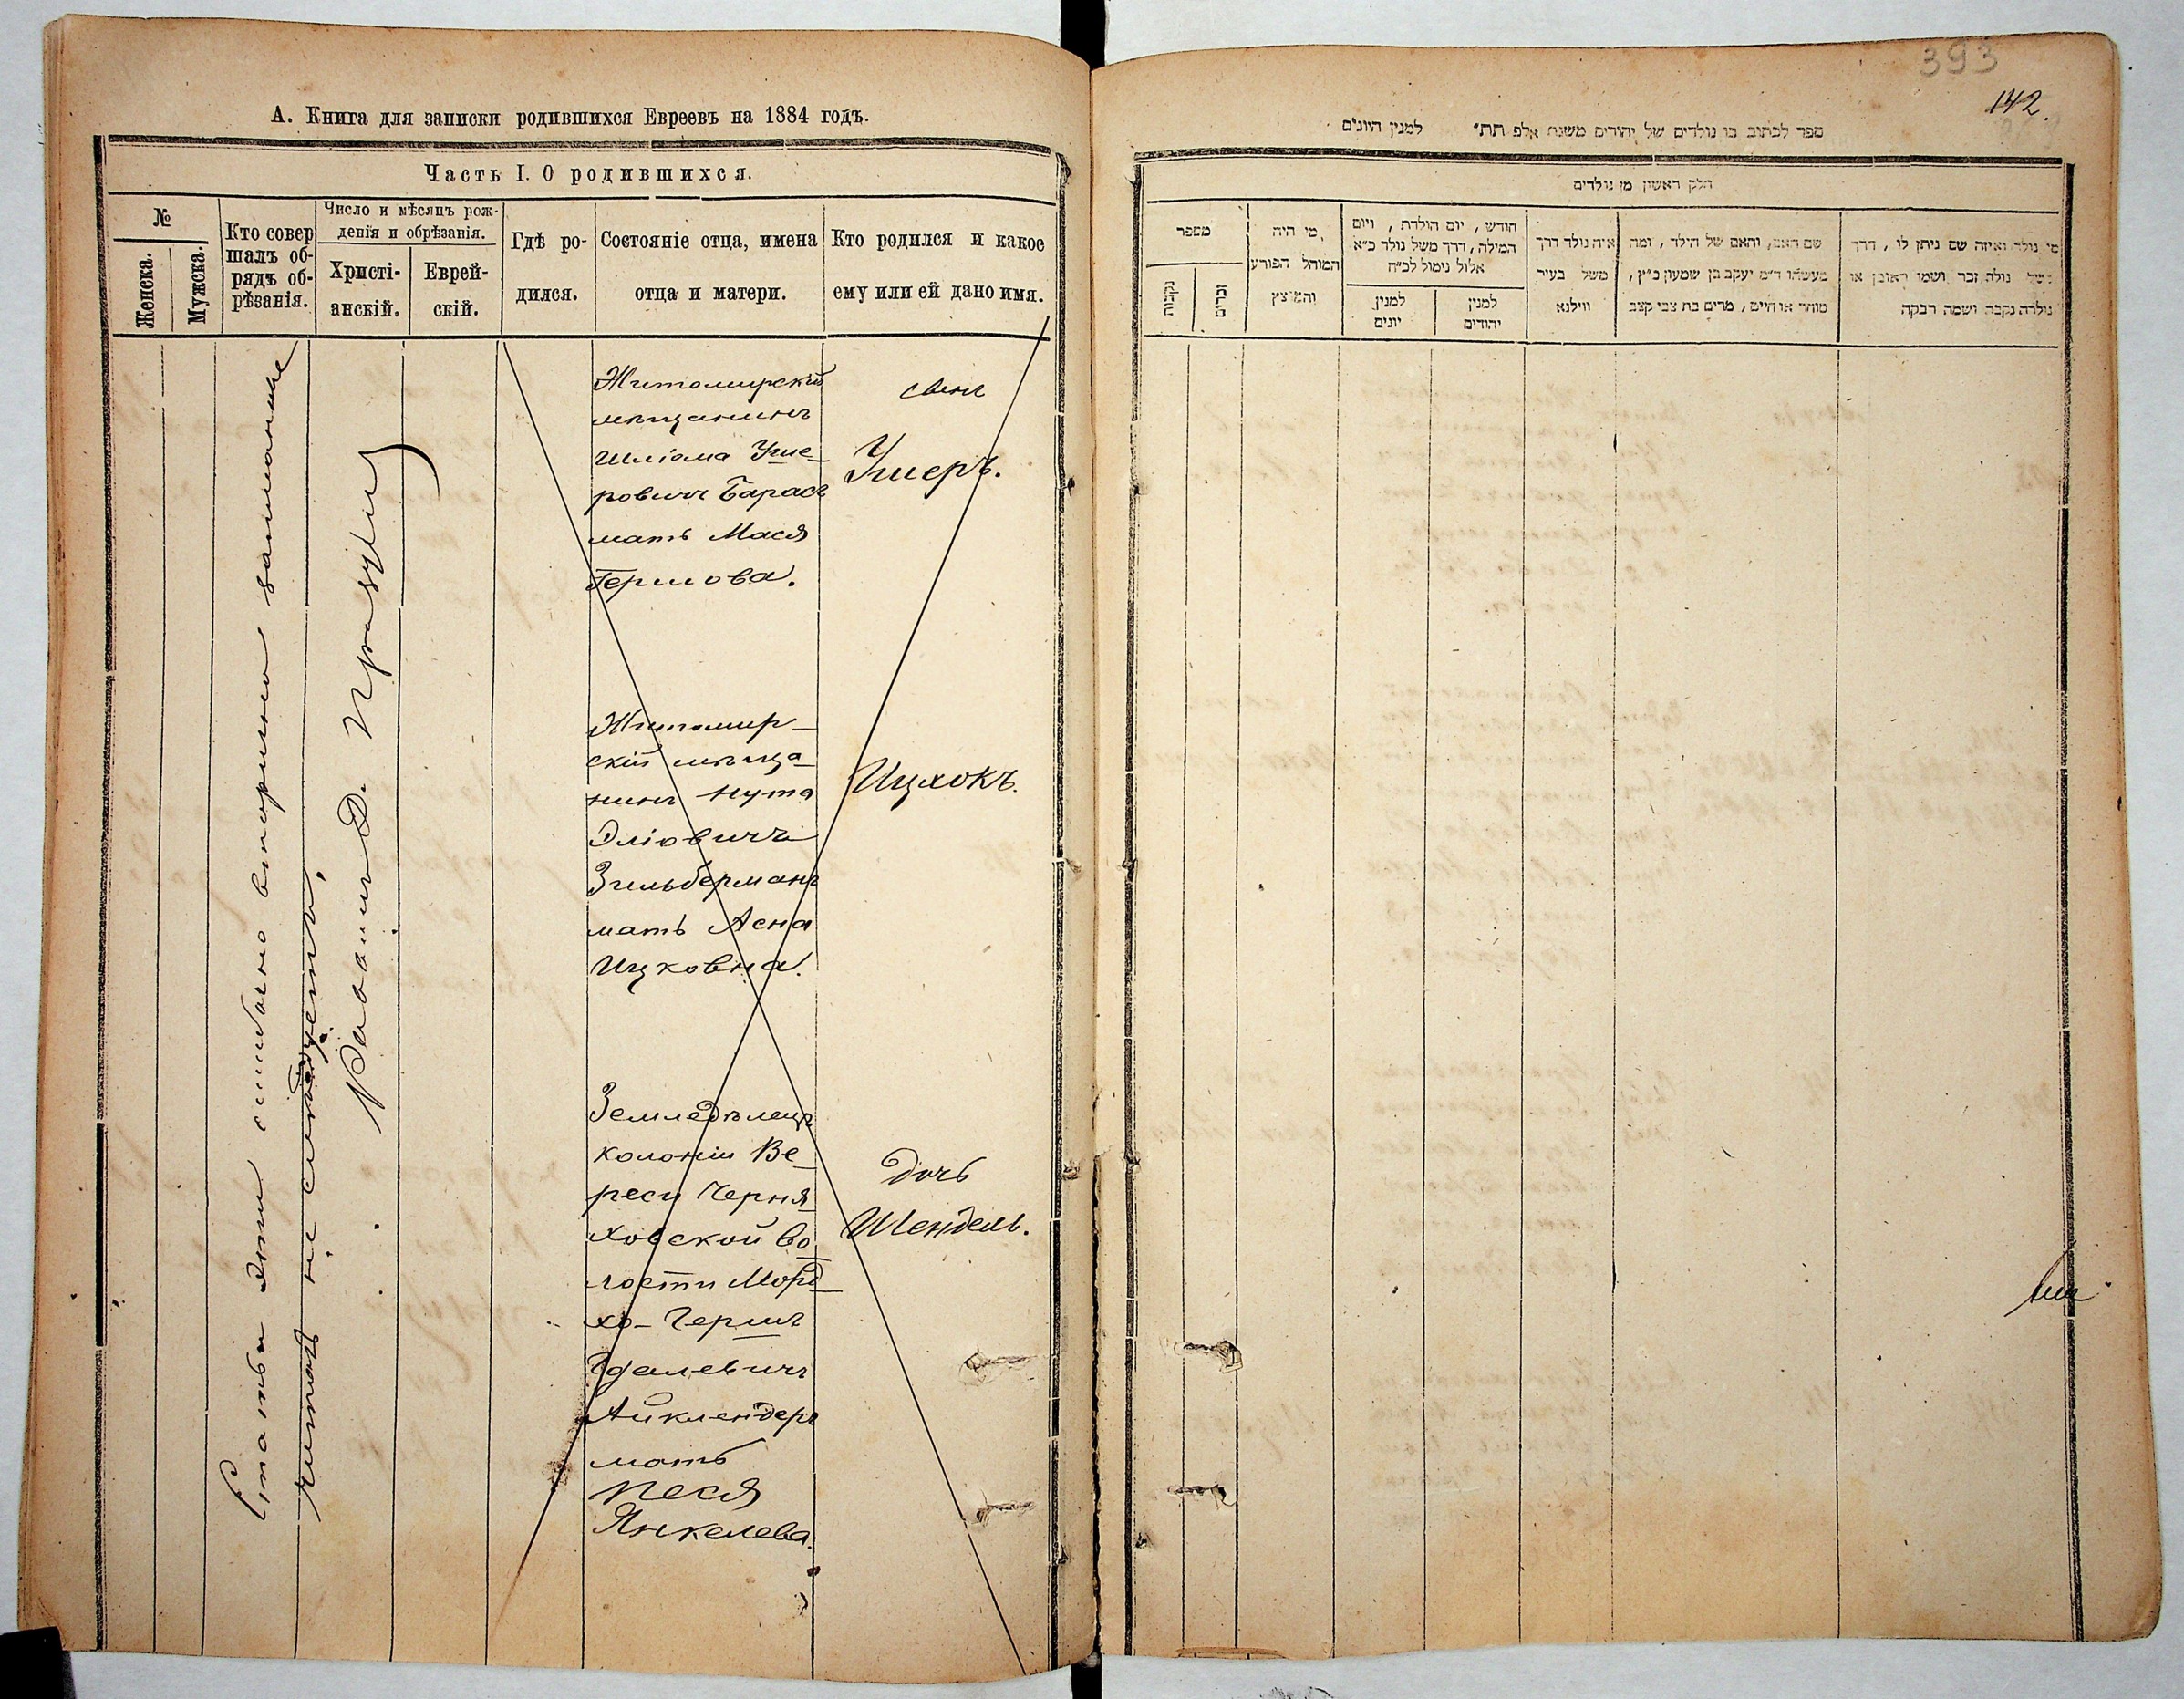 А. Книга для записки родившихся Евреевъ на 1884 годъ.
Часть I. О родившихся.
№
Женска.
Мужска.
Кто совер
шалъ об-
рядъ об-
рѣзанія.
Число и мѣсяцъ рож-
денія и обрѣзанія.
Христі-
анскій.
Еврей-
скій.
Гдѣ ро-
дился.
Состояніе отца, имена
отца и матери.
Кто родился и какое
ему или ей дано имя.
Статьи эти ошибочно вторично записанные
читать не слѣдуетъ,
Раввинъ
Житомирскій
мѣщанинъ
Шлiома Уше-
ровичъ Барасъ
мать Мася
Гершова.
сынъ
Ушеръ.
Житомир-
скій мѣща-
нинъ Нута
Эліовичъ
Зильберманъ
мать Асна
Ицковна.
Ицхокъ.
Земледѣлецъ
колоніи Ве-
ресы Черня-
ховской во-
лости Морд-
хо-Гершъ
Гдалевичъ
Айклендеръ
мать
Песя
Янкелева.
дочь
Шендель.
393
142.
ספר לכתוב בו נולדים של יהודים משנת אלף תת״ למנין היונים
חלק ראשון מן נולדים
מספר
נקבות
זכרים
מי היה
המוהל הפורע
והמוצץ
חודש, יום הולדת, ויום
המילה, דרך משל נולד כ״א
אלול נימול לכ״ח
למנין
יונים
למנין
יהודים
איה נולד דרך
משל בעיר
ווילנא
שם האב, והאם של הילד, ומה
מעשהו ד״מ יעקב בן שמעון כ״ץ,
סוחר או חייט, מרים בת צבי קצב
מי נולד ואיזה שם ניתן לו, דרך
משל נולה זכר ושמו ראובן או
נולדה נקבה ושמה רבקה